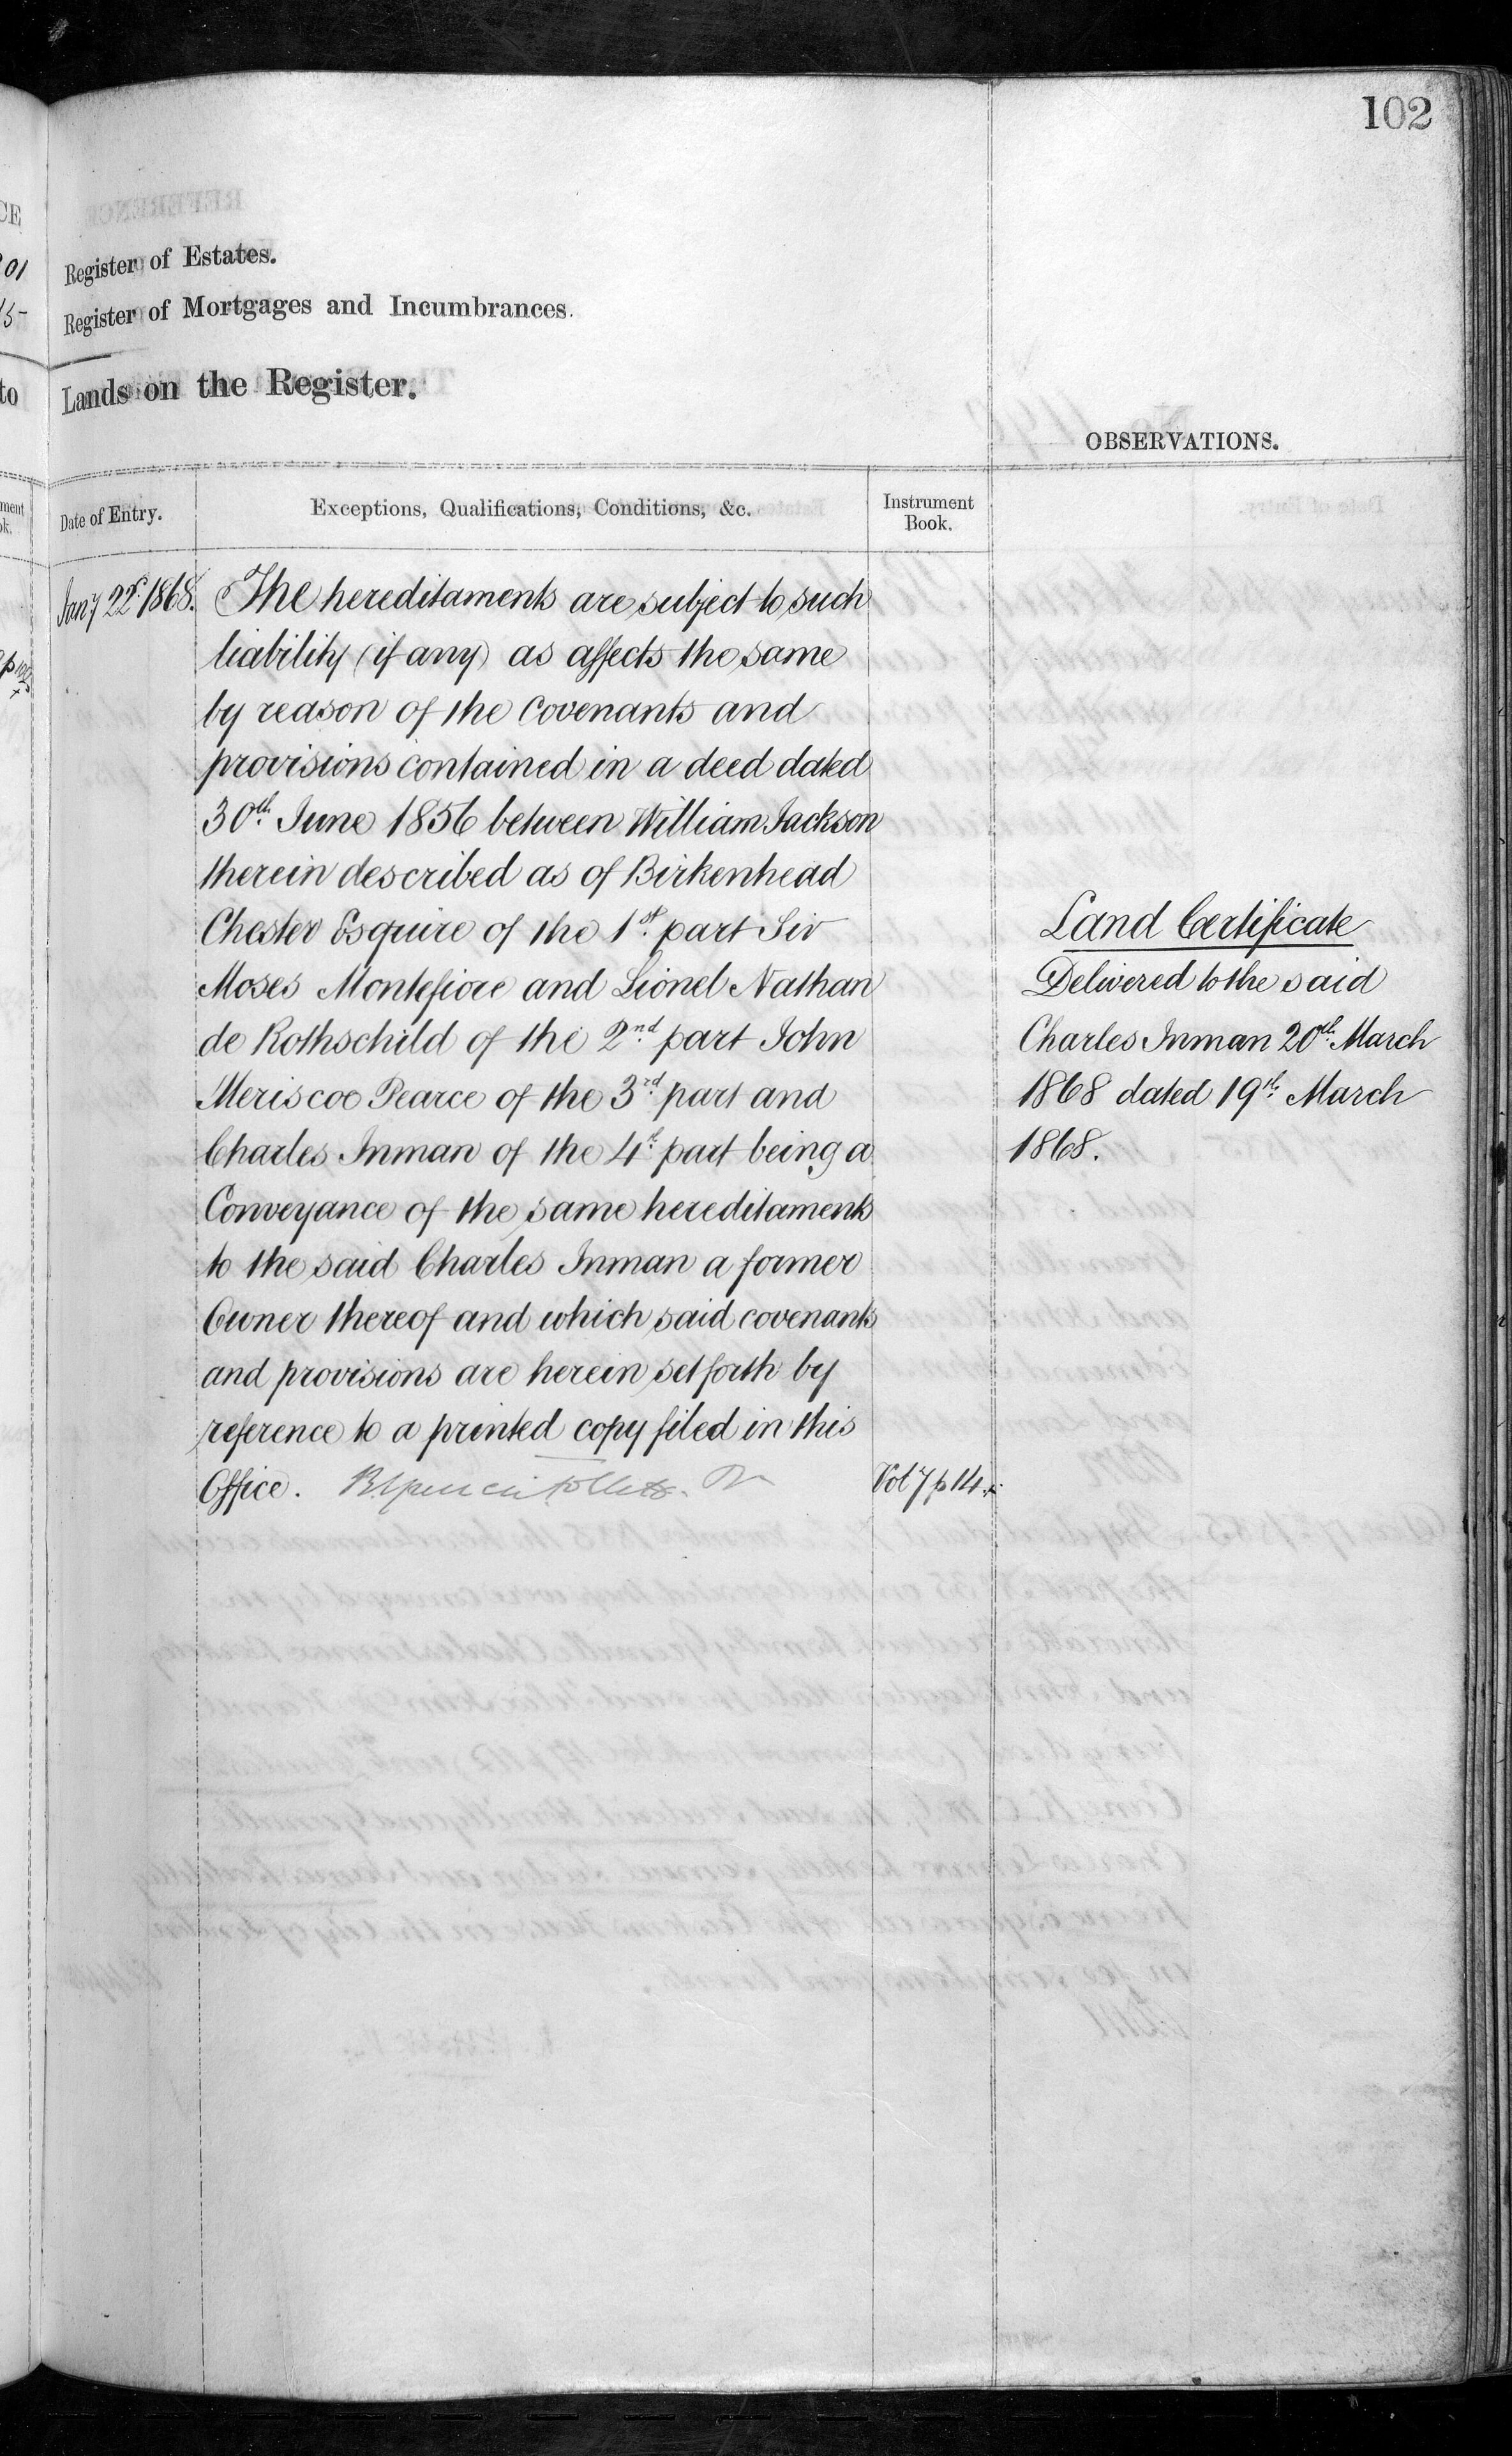 102
Register of Estates.
Register of Mortgages and Incumbrances.
Lands on the Register.
OBSERVATIONS.
Date of Entry.
Exceptions, Qualifications, Conditions, &c.
Instrument
Book.
Jany 22d 1868.
The hereditaments are subject to such
liability (if any) as affects the same
by reason of the Covenants and
provisions contained in a deed dated
30th June 1856 between William Jackson
therein described as of Birkenhead
Chester Esquire of the 1st part Sir
Moses Montefiore and Lionel Nathan
de Rothschild of the 2nd part John
Meriscoe Pearce of the 3rd part and
Charles Inman of the 4th part being a
Conveyance of the same hereditaments
to the said Charles Inman a former
Owner thereof and which said covenants
and provisions are herein set forth by
reference to a printed copy filed in this
Office.
Vol 7 p 14
Land Certificate
Delivered to the said
Charles Inman 20th March
1868 dated 19th March
1868.